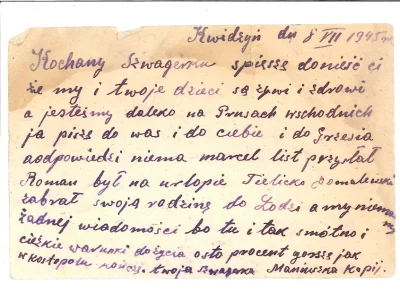 Kwidzyń dn 8 VII 1945 r
Kochany Szwagerku spieszę donieść ci
że my i twoje dzieci są żywi i zdrowi
a jesteśmy daleko na Prusach wschodnich
ja piszę do was i do ciebie i do Grzesia
a odpowiedzi niema marcel list przysłał
Roman był na urlopie
zabrał swoją rodzinę do Łodzi a my niemamy
żadnej wiadomości bo tu i tak smótno i
cieżkie warunki do życia o sto procent gorsze jak
w Kostopolu kończę. twoja szwagerka Maniuszka